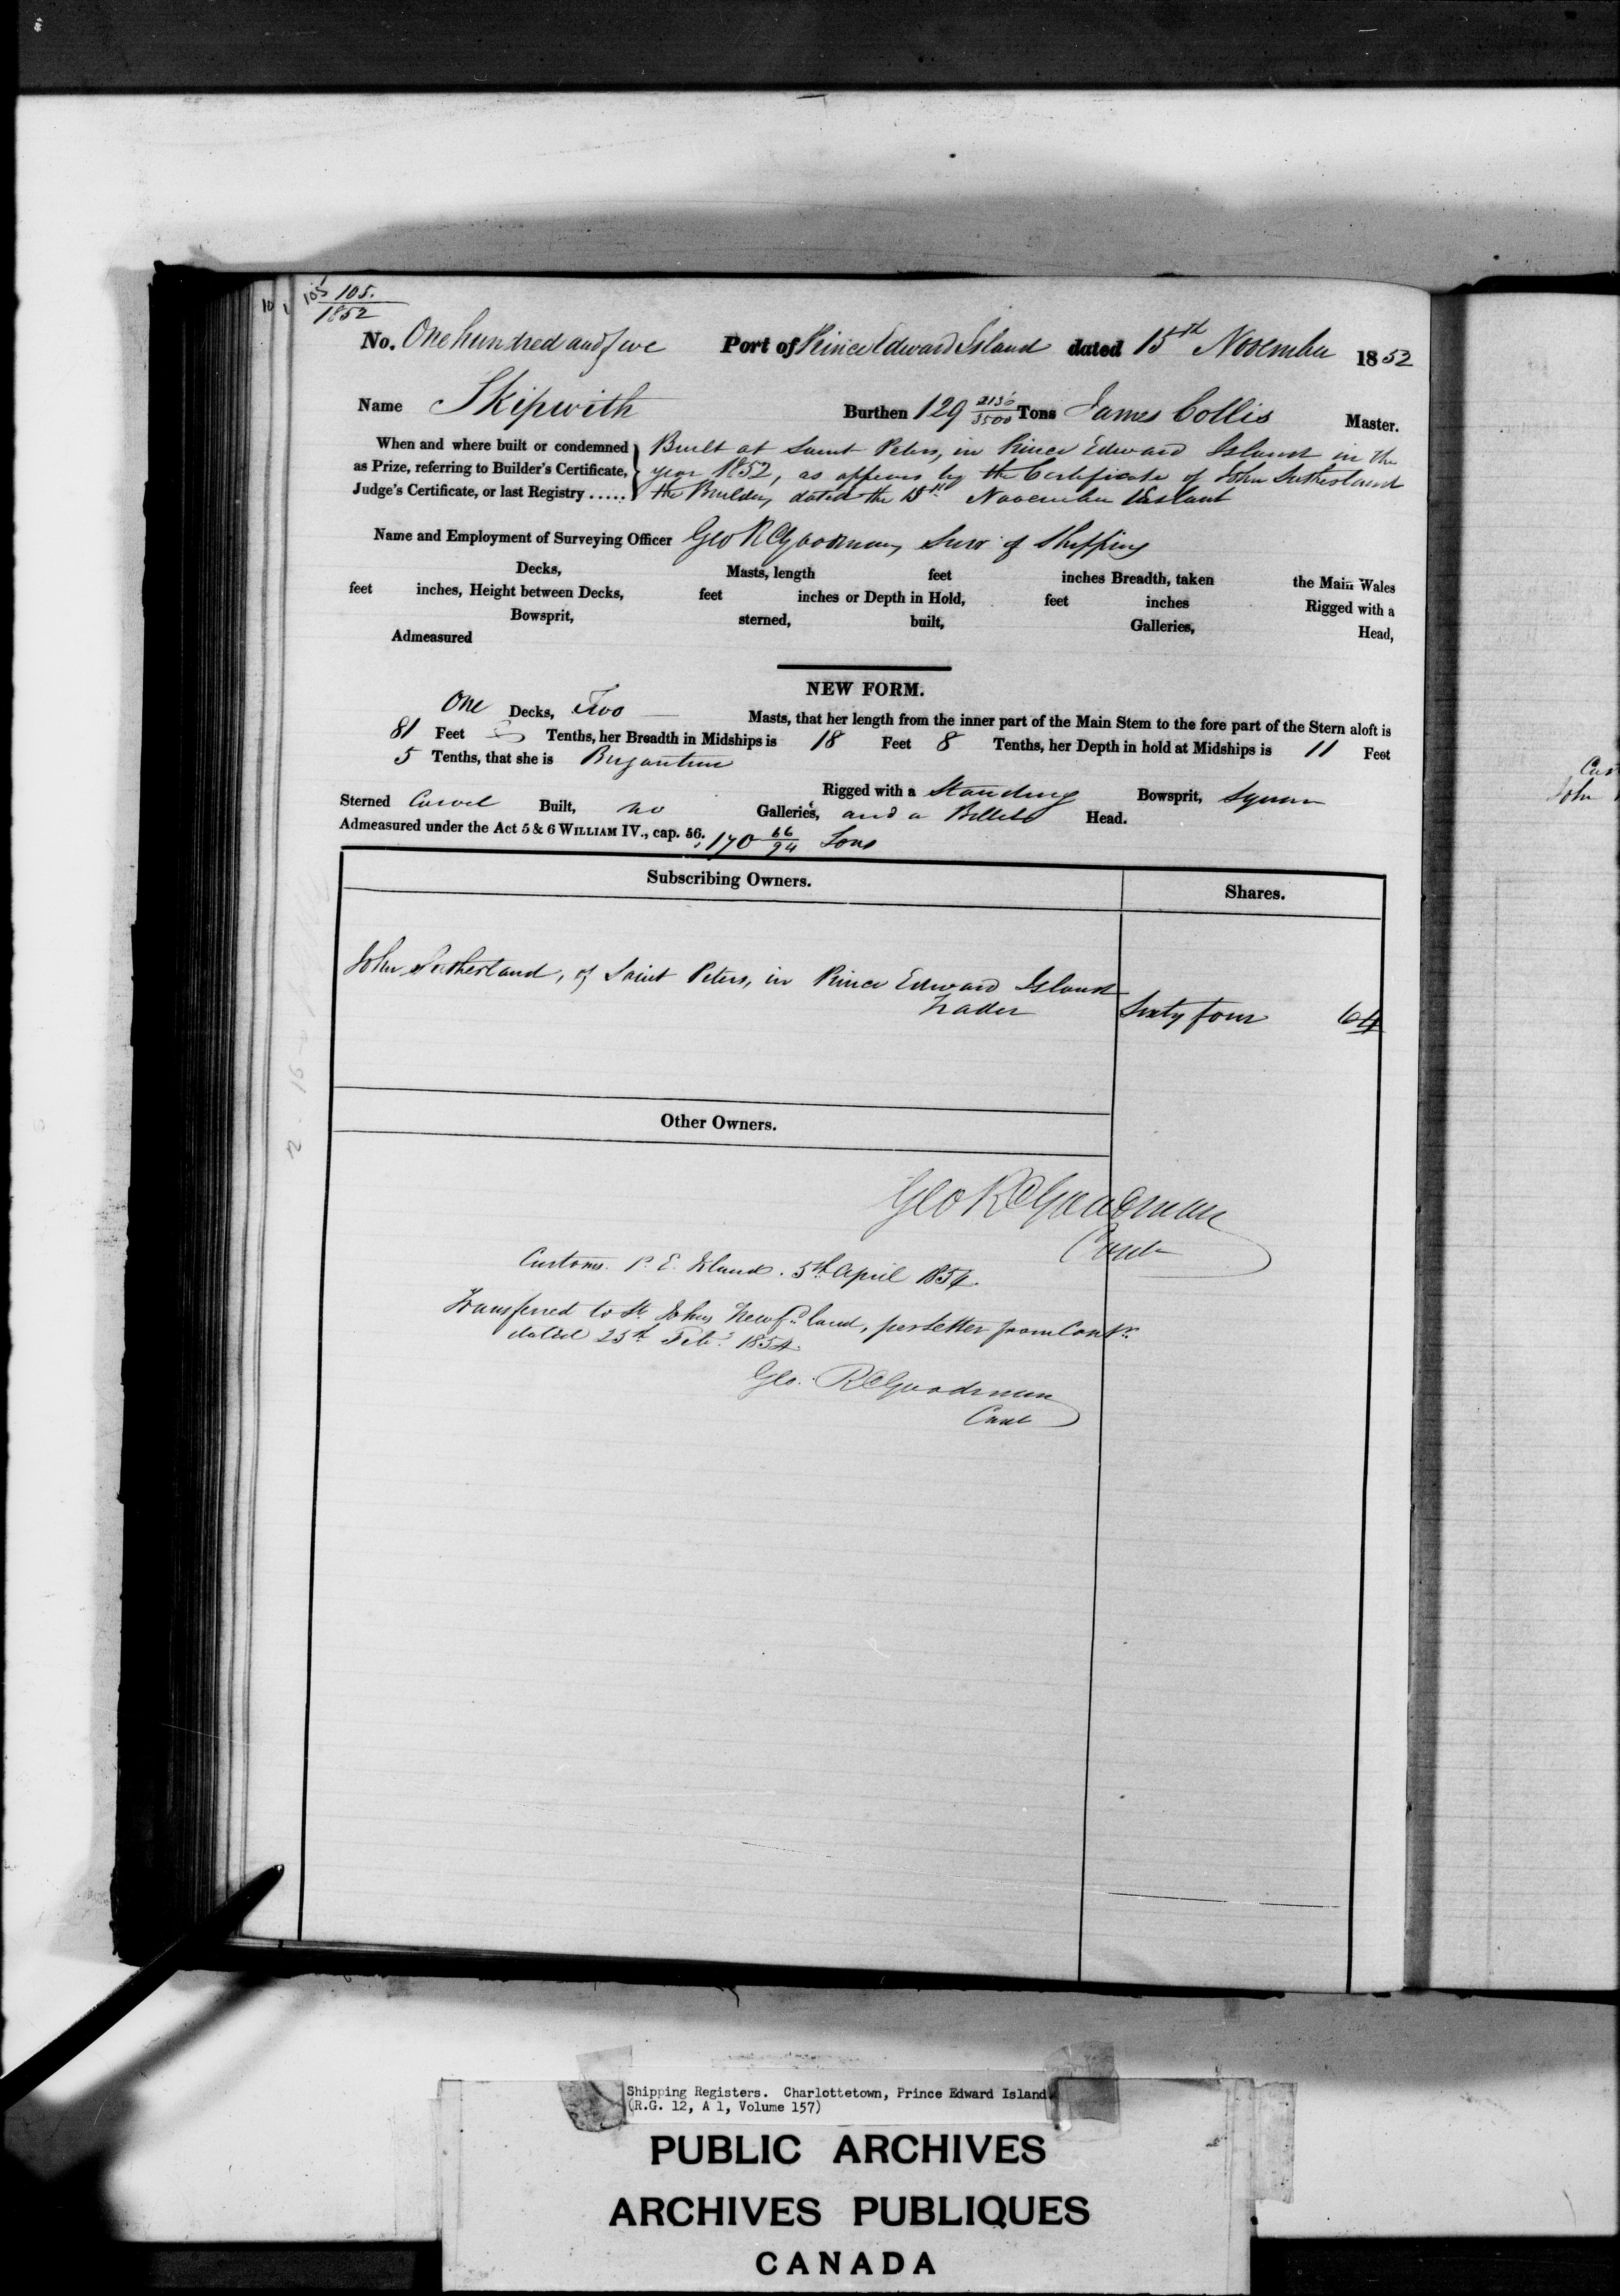 105 105.
1852
No. One hundred and five Port of Prince Edward Island dated 15th November 1852
Name Skipwith Burthen 129 2136/3500 Tons James Collis Master.
When and where built or condemned as Prize, referring to Builder's Certificate, Judge's Certificate, or last Registry .....
Built at Saint Peters, in Prince Edward Island in the
year 1852, as appears by the Certificate of John Sutherland
the Builder, dated the 15th November Instant
Name and Employment of Surveying Officer Geo R Goodman, Surv of Shipping
Decks, Masts, length feet inches Breadth, taken the Main Wales
feet inches, Height between Decks, feet inches or Depth in Hold, feet inches Rigged with a
Bowsprit, sterned, built, Galleries, Head,
Admeasured
NEW FORM.
One Decks, Two Masts, that her length from the inner part of the Main Stem to the fore part of the Stern aloft is
81 Feet Tenths, her Breadth in Midships is 18 Feet 8 Tenths, her Depth in hold at Midships is 11 Feet
5 Tenths, that she is Brigantine
Rigged with a Standing Bowsprit, Square
Sterned Carvel Built, no Galleries, and a Billet Head.
Admeasured under the Act 5 & 6 WILLIAM IV., cap. 56. 170 66/94 Tons
Subscribing Owners. Shares.
John Sutherland, of Saint Peters, in Prince Edward Island
Trader Sixty four 64
Other Owners.
Geo R Goodman
Cont
Customs. P. E. Island. 5th April 1854.
Transferred to St Johns Newfdland, per Letter from Contr
dated 25th Feby 1854.
Geo. R Goodman
Cont
Shipping Registers. Charlottetown, Prince Edward Island.
(R.G. 12, A 1, Volume 157)
PUBLIC ARCHIVES
ARCHIVES PUBLIQUES
CANADA